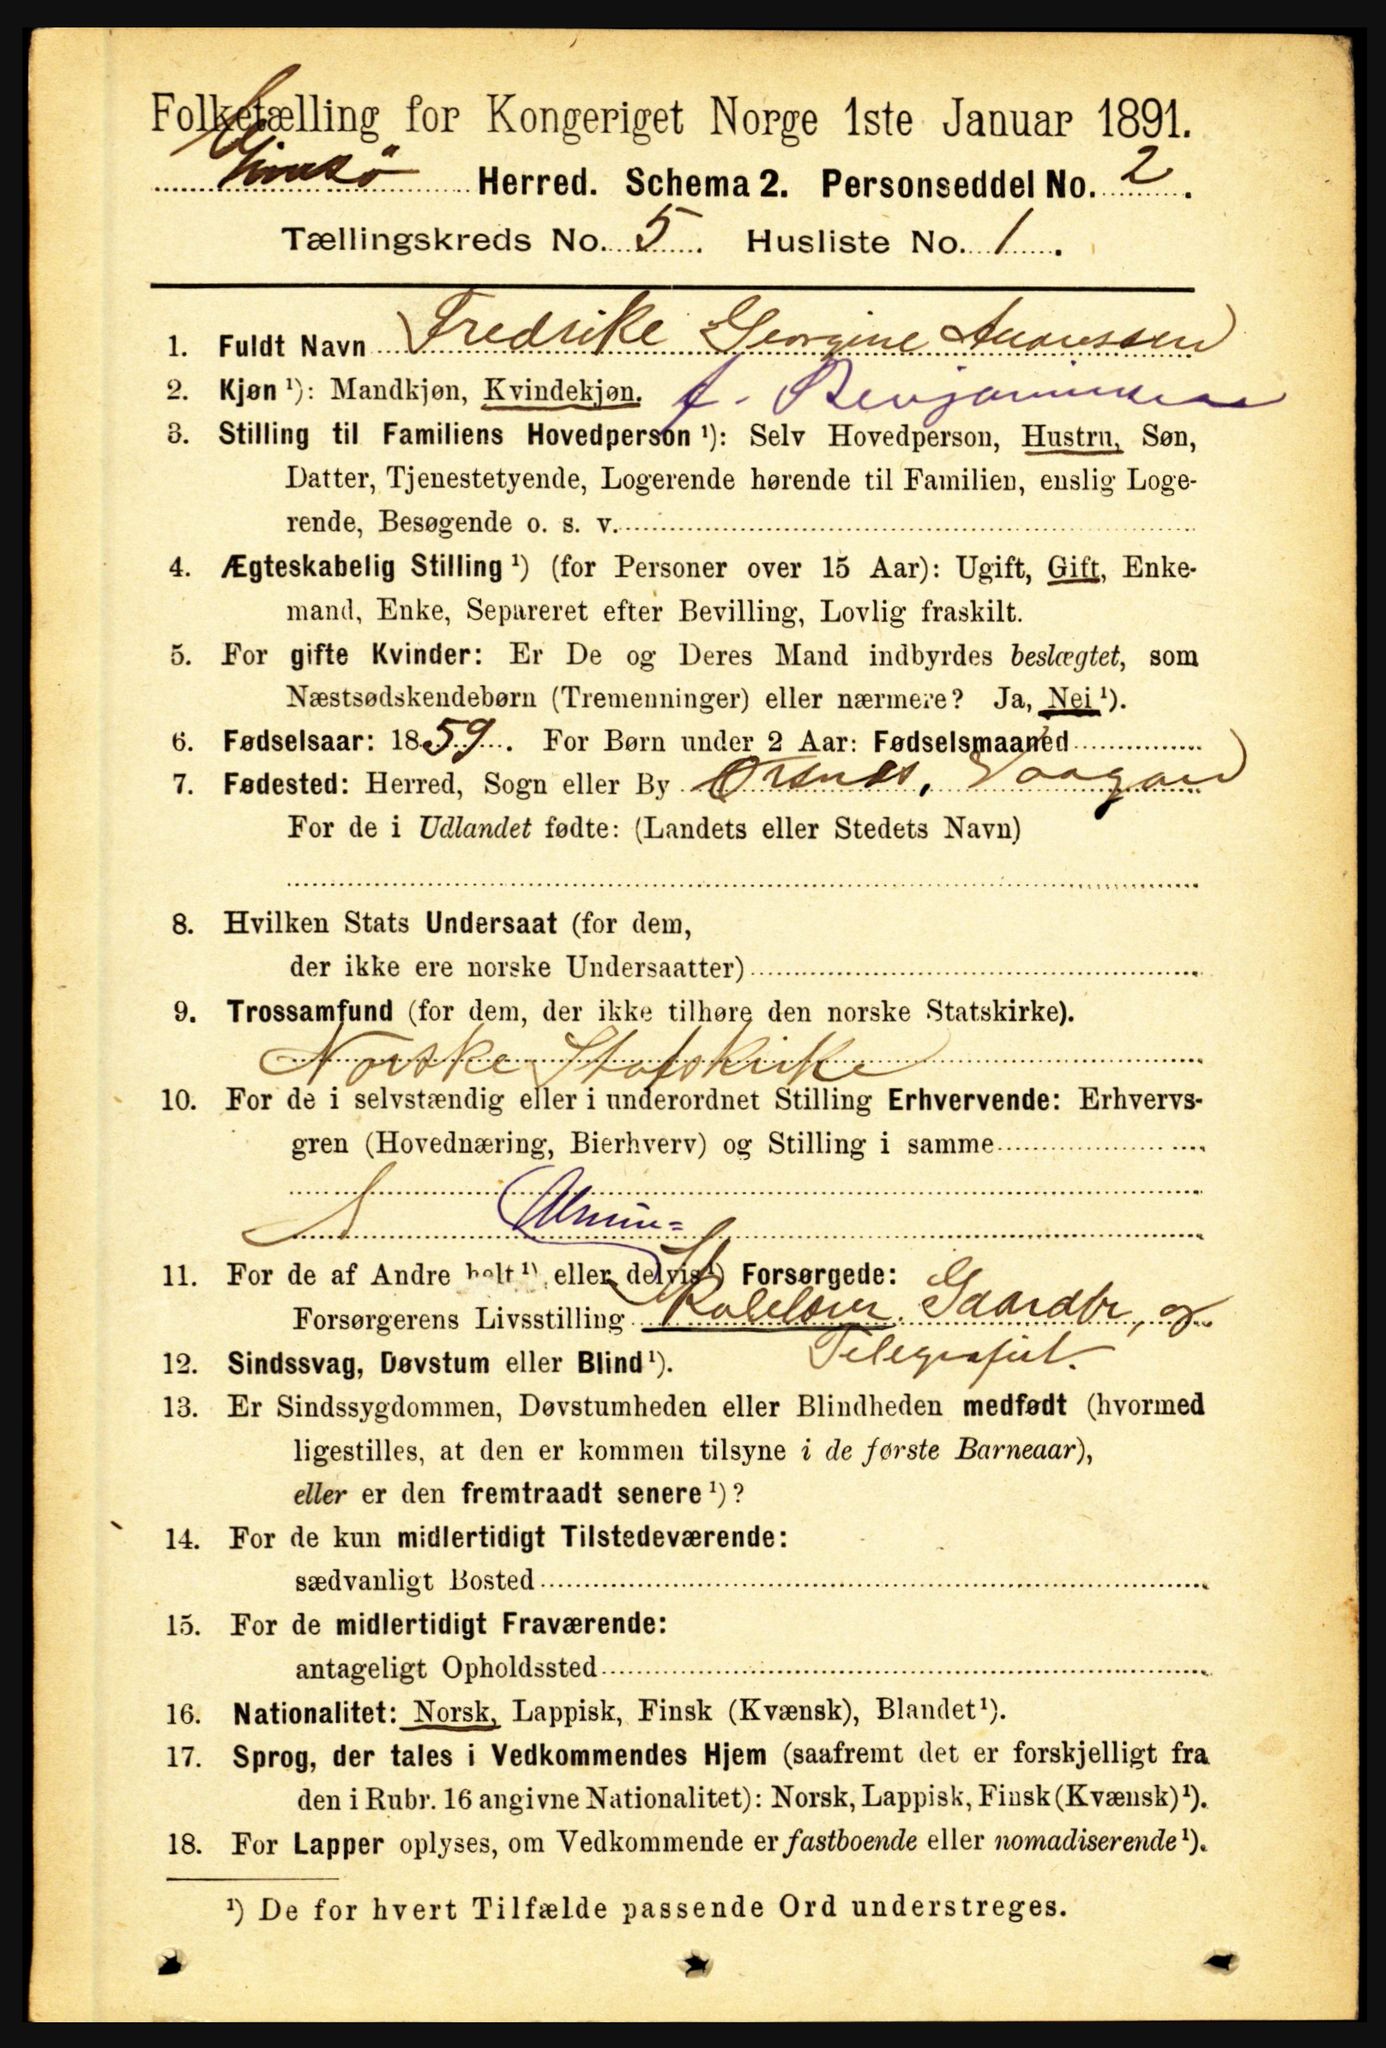 Folketælling for Kongeriget Norge 1ste Januar 1891.
Gimsø Herred. Schema 2. Personseddel No. 2.
Tællingskreds No. 5. Husliste No. 1.
1. Fuldt Navn Fredrike Georgine
2. Kjøn ¹): Mandkjøn, Kvindekjøn. f. Benjaminsen
3. Stilling til Familiens Hovedperson ¹): Selv Hovedperson, Hustru, Søn,
Datter, Tjenestetyende, Logerende hørende til Familien, enslig Loge-
rende, Besøgende o. s. v.
4. Ægteskabelig Stilling ¹) (for Personer over 15 Aar): Ugift, Gift, Enke-
mand, Enke, Separeret efter Bevilling, Lovlig fraskilt.
5. For gifte Kvinder: Er De og Deres Mand indbyrdes beslægtet, som
Næstsødskendebørn (Tremenninger) eller nærmere? Ja, Nei ¹).
6. Fødselsaar: 1859. For Børn under 2 Aar: Fødselsmaaned
7. Fødested: Herred, Sogn eller By Ørsnes, Vaagan
For de i Udlandet fødte: (Landets eller Stedets Navn)
8. Hvilken Stats Undersaat (for dem,
der ikke ere norske Undersaatter)
9. Trossamfund (for dem, der ikke tilhøre den norske Statskirke).
Norske Statskirke
10. For de i selvstændig eller i underordnet Stilling Erhvervende: Erhvervs-
gren (Hovednæring, Bierhverv) og Stilling i samme
11. For de af Andre helt ¹) eller delvis ¹) Forsørgede:
Forsørgerens Livsstilling Skolelærer. Gaardbr, og
Telegrafist.
12. Sindssvag, Døvstum eller Blind ¹).
13. Er Sindssygdommen, Døvstumheden eller Blindheden medfødt (hvormed
ligestilles, at den er kommen tilsyne i de første Barneaar),
eller er den fremtraadt senere ¹)?
14. For de kun midlertidigt Tilstedeværende:
sædvanligt Bosted
15. For de midlertidigt Fraværende:
antageligt Opholdssted
16. Nationalitet: Norsk, Lappisk, Finsk (Kvænsk), Blandet ¹).
17. Sprog, der tales i Vedkommendes Hjem (saafremt det er forskjelligt fra
den i Rubr. 16 angivne Nationalitet): Norsk, Lappisk, Finsk (Kvænsk) ¹).
18. For Lapper oplyses, om Vedkommende er fastboende eller nomadiserende ¹).
¹) De for hvert Tilfælde passende Ord understreges.